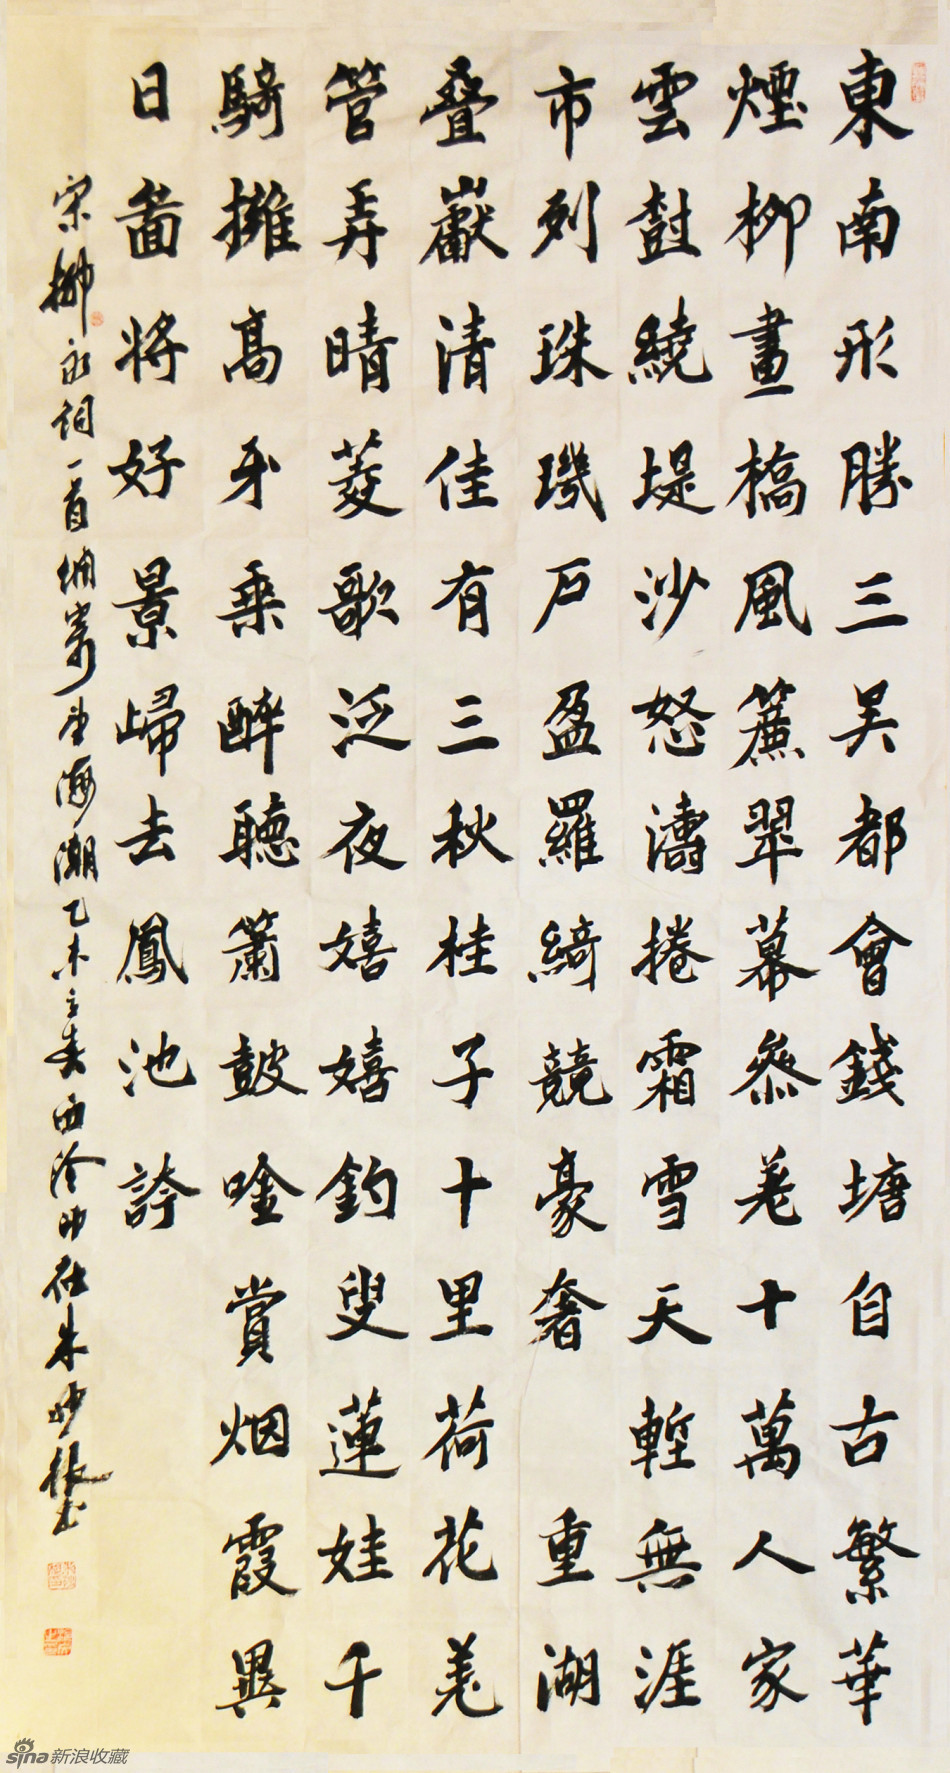 東南形勝三吴都會錢塘自古繁華
煙柳畫橋風簾翠幕叅差十萬人家
雲樹繞堤沙怒濤捲霜雪天塹無涯
市列珠璣戶盈羅綺競豪奢 重湖
叠巘清佳有三秋桂子十里荷花羌
管弄晴菱歌泛夜嬉嬉釣叟蓮娃千
騎擁高牙乘醉聽簫鼓唫賞烟霞異
日啚將好景歸去鳳池誇
宋柳永詞一首 望海潮乙未立春西泠印社朱妙根書
sina新浪收藏